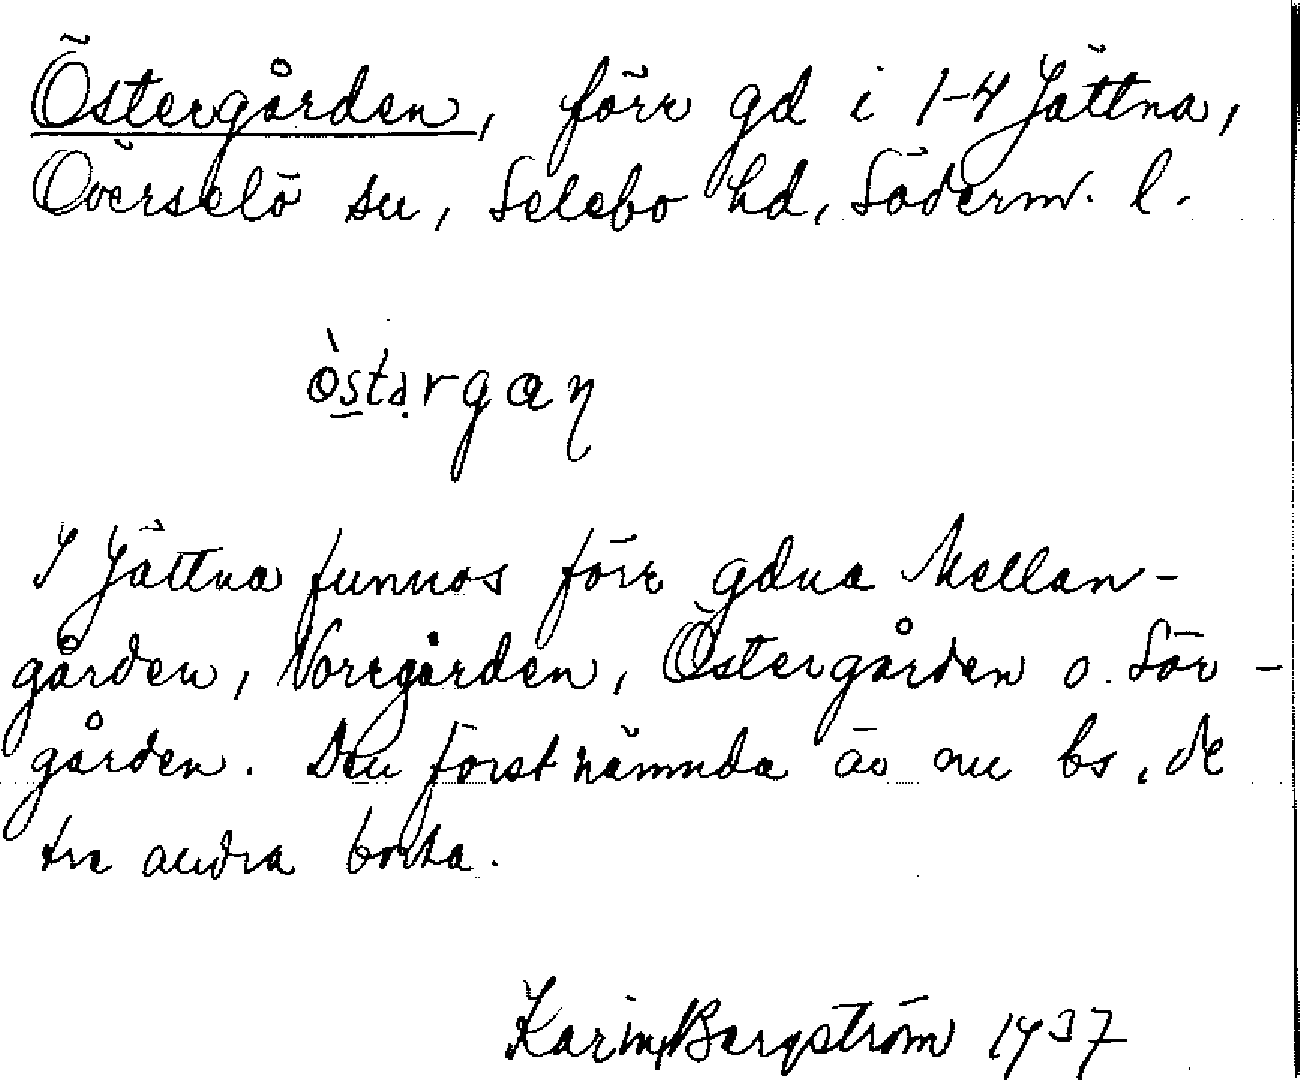 Östergården, förr gd i 1-4 Jättna,
Överselö sn, Selebo hd, Söderm. l.
òstərgaɳ
I Jättna funnos förr gdna Mellan-
gården, Norrgården, Östergården o. Sör-
gården. Den förstnämnda är nu bs, de
tre andra borta.
Karin Bergström 1937